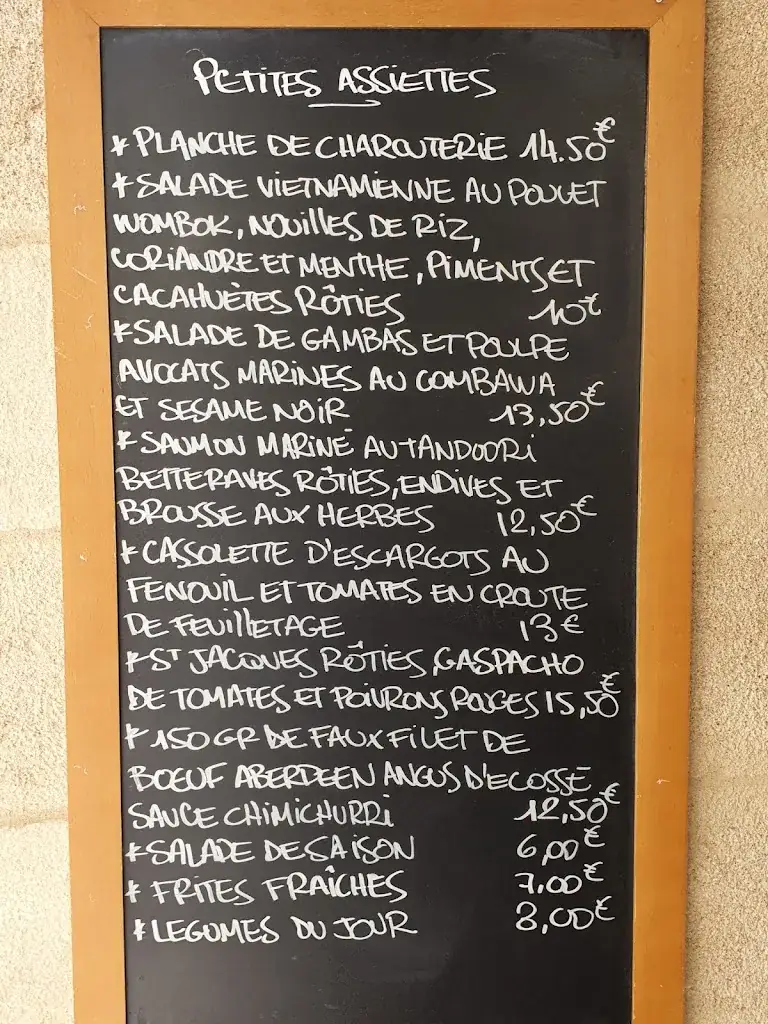 PETITES ASSIETTES
* PLANCHE DE CHARCUTERIE 14.50€
* SALADE VIETNAMIENNE AU POULET
WOMBOK, NOUILLES DE RIZ,
CORIANDRE ET MENTHE, PIMENTS ET
CACAHUÈTES RÔTIES 10€
* SALADE DE GAMBAS ET POULPE
AVOCATS MARINES AU COMBAWA
ET SESAME NOIR 13,50€
* SAUMON MARINÉ AU TANDOORI
BETTERAVES RÔTIES, ENDIVES ET
BROUSSE AUX HERBES 12,50€
* CASSOLETTE D'ESCARGOTS AU
FENOUIL ET TOMATES EN CROUTE
DE FEUILLETAGE 13€
* ST JACQUES RÔTIES, GASPACHO
DE TOMATES ET POIVRONS ROUGES 15,50€
* 150 GR DE FAUX FILET DE
BOEUF ABERDEEN ANGUS D'ECOSSE
SAUCE CHIMICHURRI 12,50€
* SALADE DE SAISON 6,00€
* FRITES FRAÎCHES 7,00€
* LEGUMES DU JOUR 8,00€